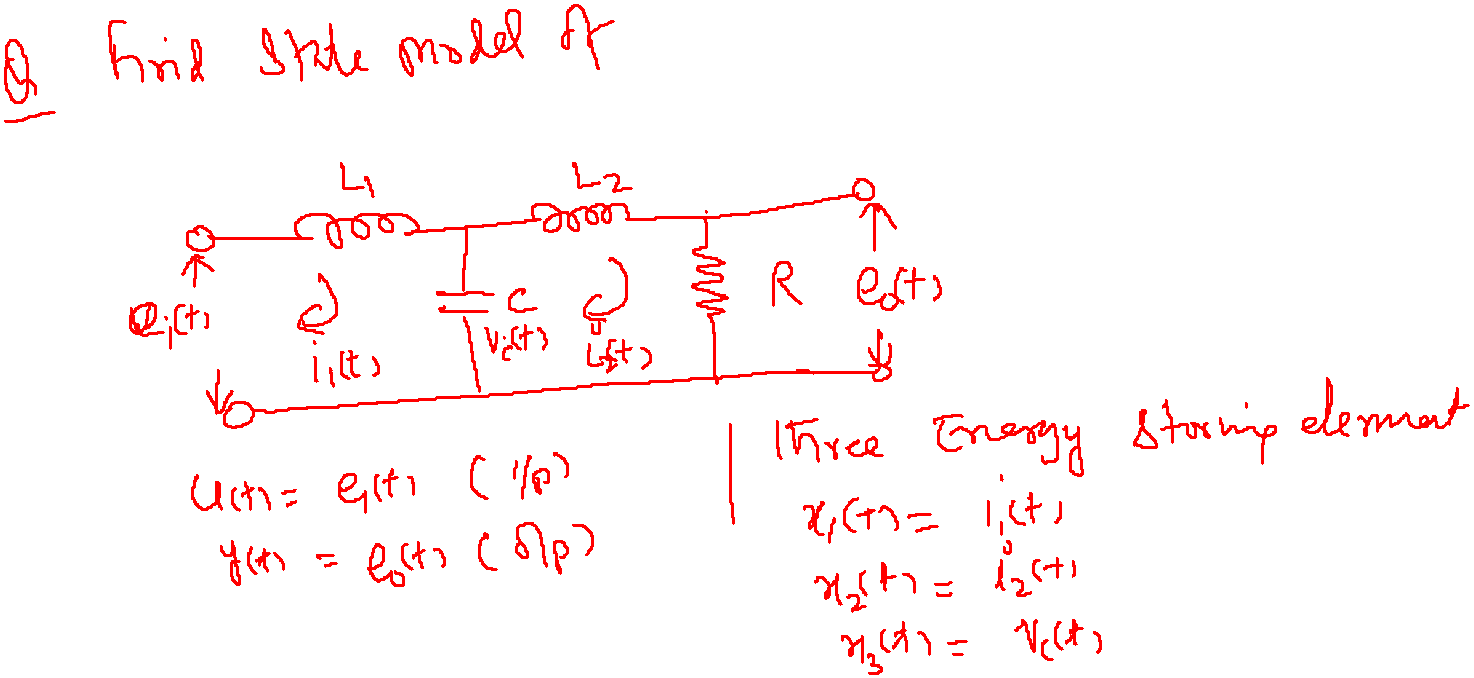 Q Find State model of
L1 L2
ei(t) i1(t) C Vc(t) i2(t) R eo(t)
u(t) = ei(t) (i/p)
y(t) = eo(t) (o/p)
Three Energy storing element
x1(t) = i1(t)
x2(t) = i2(t)
x3(t) = Vc(t)